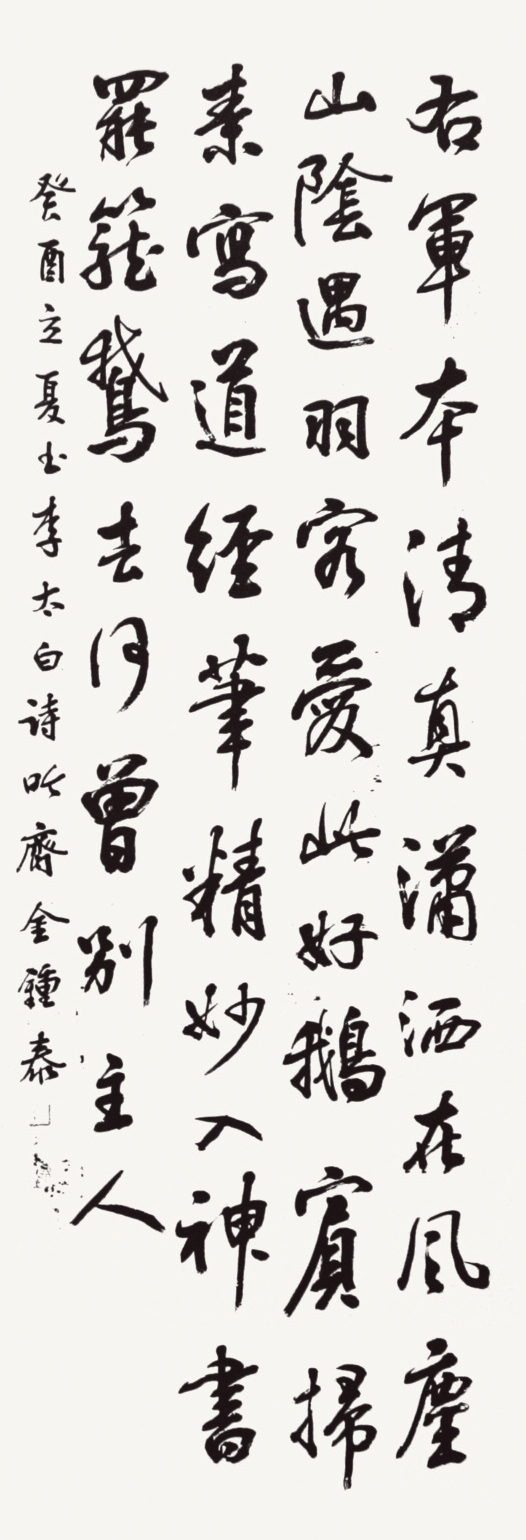 右軍本清真瀟洒在風塵
山陰遇羽客愛此好鵝賓掃
素寫道經筆精妙入神書
罷籠鵞去何曾別主人
癸酉立夏书李太白诗 齋金鍾泰